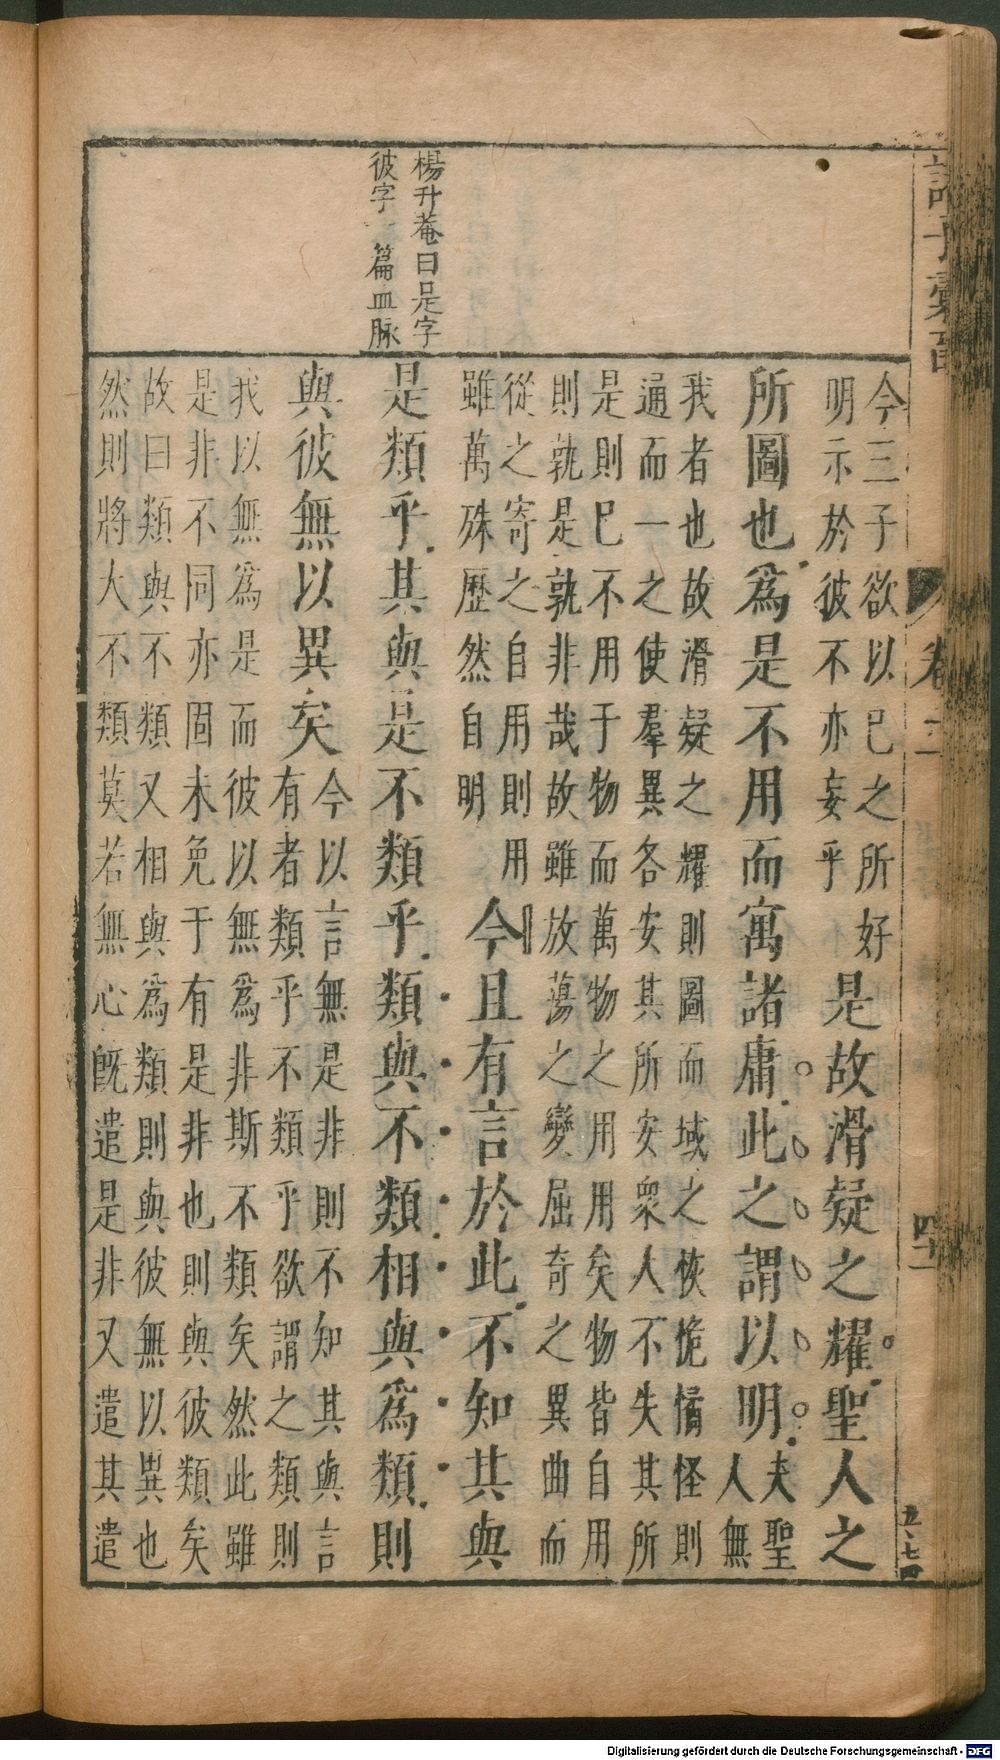 楊升菴曰是字
彼字一篇血脉
今三子欲以巳之所好
明示於彼不亦妄乎
是故滑疑之耀聖人之
所圖也為是不用而寓諸庸此之謂以明
夫聖
人無
我者也故滑疑之耀則圖而域之恢恑憰怪則
通而一之使羣異各安其所安衆人不失其所
是則巳不用于物而萬物之用用矣物皆自用
則孰是孰非哉故雖放蕩之變屈奇之異曲而
從之寄之自用則用
雖萬殊歷然自明
今且有言於此不知其與
是類乎其與是不類乎類與不類相與爲類則
與彼無以異矣
今以言無是非則不知其與言
有者類乎不類乎欲謂之類則
我以無爲是而彼以無爲非斯不類矣然此雖
是非不同亦固未免于有是非也則與彼類矣
故曰類與不類又相與爲類則與彼無以異也
然則將大不類莫若無心旣遣是非又遣其遣
卷二
四十一
五、七四
Digitalisierung gefördert durch die Deutsche Forschungsgemeinschaft - DFG